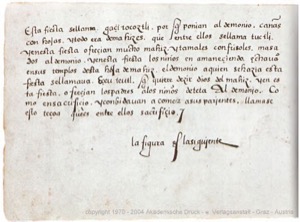 Esta fiesta se llama, gueytocoztli, por q̃ ponian al demonio, cañas
con hojas, y todo era de mahizes, que entre ellos se llama tuctli,
yen esta fiesta ofrecian mucho mahiz y tamales con frisoles, masa
al demonio, yen esta fiesta los niños en amaneciendo
en sus templos desta demahiz, el demonio a quien se hazia esta
fiesta se llamava, quiere dezir dios del mahiz, yen es
ta fiesta, ofrecian los padres a los niños de teta Al demonio, Co
mo en sacrificio, y conbidavan a comer a sus parientes, llamase
esto entre ellos sacrificio
la figura es la siguiente
Copyright 1970 - 2004 Akademische Druck - u. Verlagsanstalt - Graz - Austria